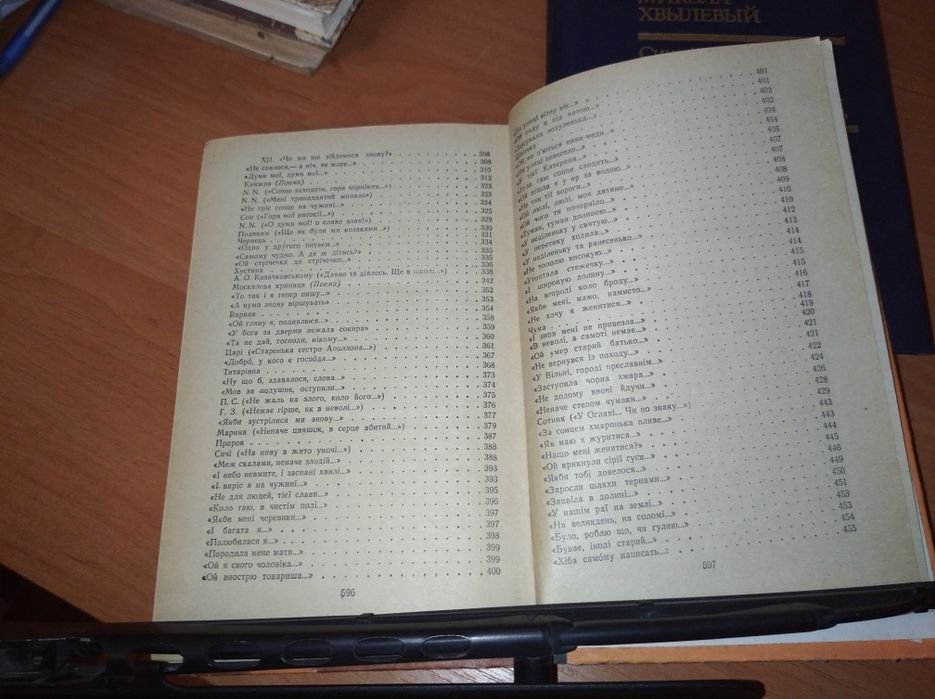 МИКОЛА
ХВЫЛЕВЫЙ
XII. «Чи ми ще зійдемося знову?» 308
«Не спалося,— а ніч, як море...» 308
«Думи мої, думи мої...» 310
Княжна (Поема) 312
N. N. («Сонце заходить, гори чорніють...») 323
N. N. («Мені тринадцятий минало») 323
«Не гріє сонце на чужині...» 324
Сон («Гори мої високії...») 325
N. N. («О думи мої! о славо злая!») 329
Полякам («Ще як були ми козаками...») 330
Чернець 331
«Один у другого питаєм...» 334
«Самому чудно. А де ж дітись?» 335
«Ой стрічечка до стрічечки...» 335
Хустина 336
А. О. Козачковському («Давно те діялось. Ще в школі...») 338
Москалева криниця (Поема) 342
«То так і я тепер пишу...» 352
«А нумо знову віршувать» 353
Варнак 354
«Ой гляну я, подивлюся...» 358
«У бога за дверми лежала сокира» 359
«Та не дай, господи, нікому...» 360
Царі («Старенька сестро Аполлона...») 361
«Добрó, у кого є госпóда...» 367
Титарівна 368
«Ну що б, здавалося, слова...» 373
«Мов за подушне, оступили...» 374
П. С. («Не жаль на злого, коло його...») 375
Г. З. («Немає гірше, як в неволі...») 376
«Якби зустрілися ми знову...» 377
Марина («Неначе цвяшок, в серце вбитий...») 379
Пророк 387
Сичі («На ниву в жито уночі...») 388
«Меж скалами, неначе злодій...» 388
«І небо невмите, і заспані хвилі...» 393
«І виріс я на чужині...» 393
«Не для людей, тієї слави...» 395
«Коло гаю, в чистім полі...» 396
«Якби мені черевики...» 397
«І багата я...» 397
«Полюбилася я...» 398
«Породила мене мати...» 399
«Ой я свого чоловіка...» 399
«Ой вигострю товариша...» 400
596
«По улиці вітер віє...» 401
«Ой сяду я під хатою...» 401
«Закувала зозуленька...» 402
Швачка 402
«Ой не п'ються пива-меди...» 404
«На улиці невесело...» 404
«У тієї Катерини...» 405
«Із-за гаю сонце сходить...» 407
«Ой пішла я у яр за водою...» 407
«Не так тії вороги...» 408
«Ой люлі, люлі, моя дитино...» 408
«Ой чого ти почорніло...» 409
«Туман, туман долиною...» 410
«У неділеньку у святую...» 410
«У перетику ходила...» 412
«У неділеньку та ранесенько...» 413
«Не тополю високую...» 414
«Утоптала стежечку...» 414
«І широкую долину...» 415
«На вгороді коло броду...» 415
«Якби мені, мамо, намисто...» 416
«Не хочу я женитися...» 417
Чума 418
«І знов мені не привезла...» 419
«В неволі, в самоті немає...» 420
«Ой умер старий батько...» 421
«Не вернувся із походу...» 421
«У Вільні, городі преславнім...» 422
«Заступила чорна хмара...» 424
«Не додому вночі йдучи...» 426
«Неначе степом чумаки...» 428
Сотник («У Оглаві... Чи по знаку...») 429
«За сонцем хмаронька пливе...» 443
«Як маю я журитися...» 443
«Нащо мені женитися?» 444
«Ой крикнули сірії гуси...» 445
«Якби тобі довелося...» 446
«Заросли шляхи тернами...» 449
«Зацвіла в долині...» 450
«У нашім раї на землі...» 451
«На великдень, на соломі...» 453
«Було, роблю що, чи гуляю...» 453
«Буває, іноді старий...» 454
«Хіба самому написать... 455
597